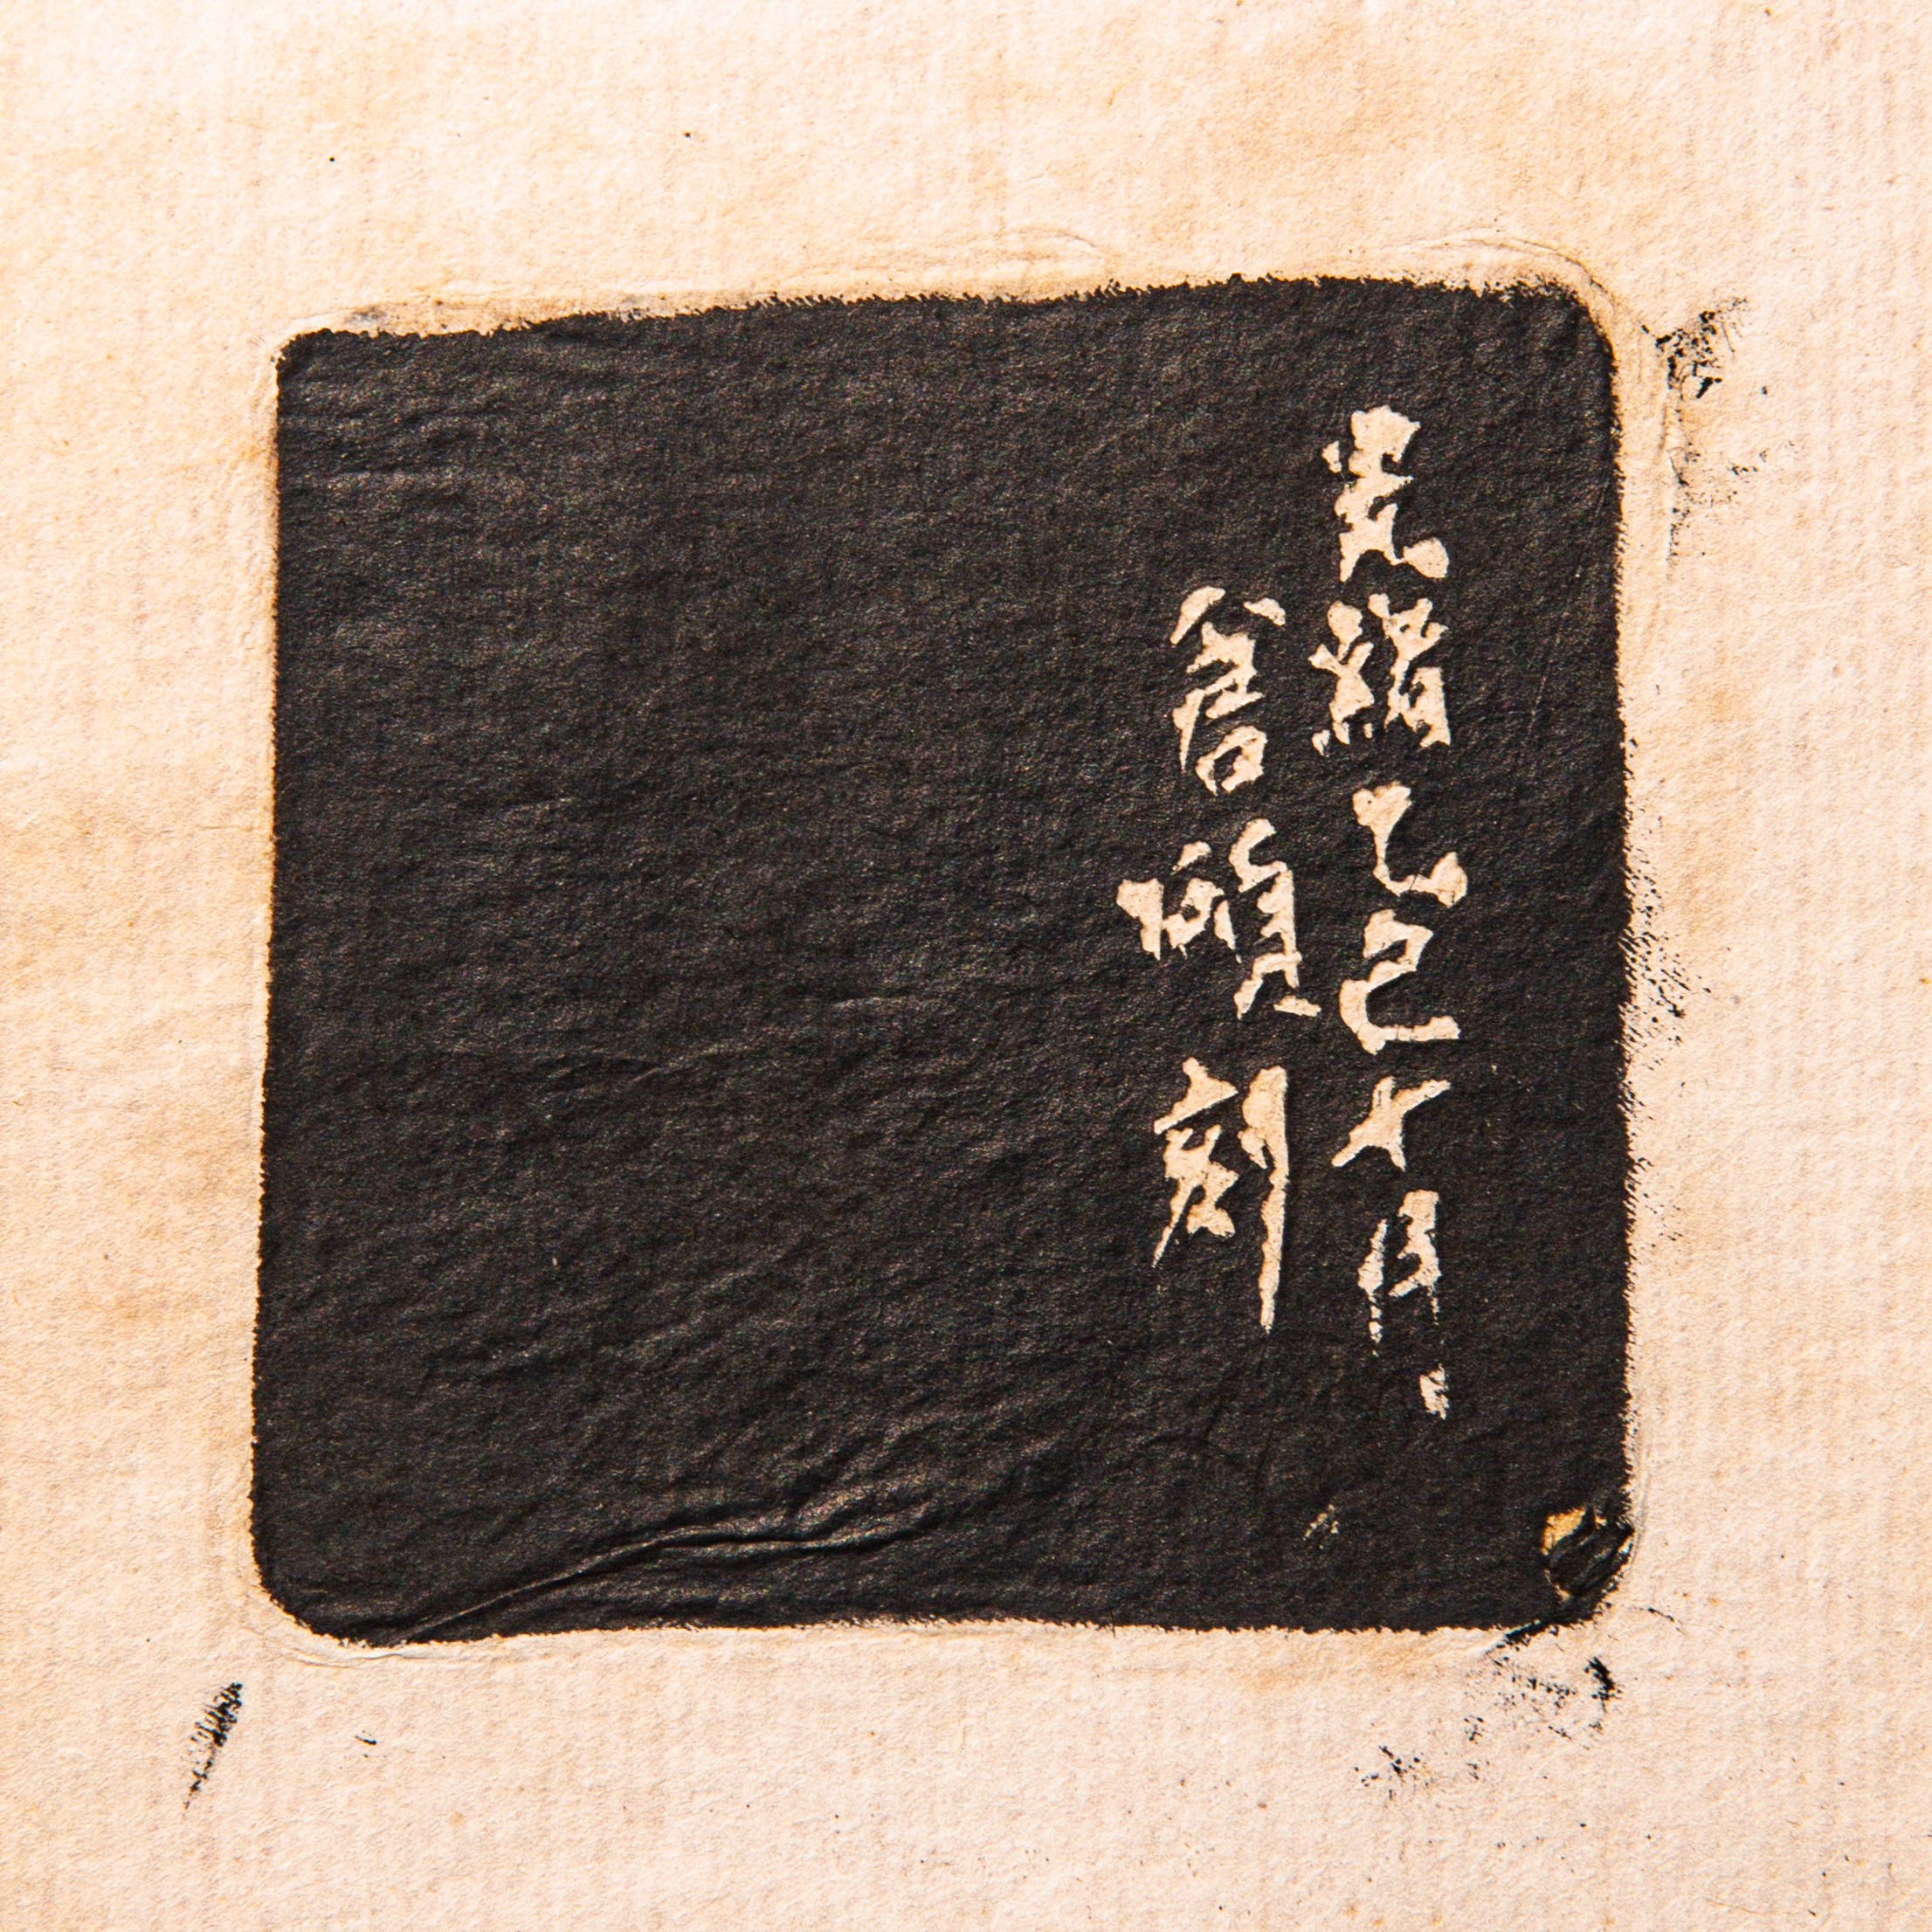 光緒乙巳六月
倉碩刻